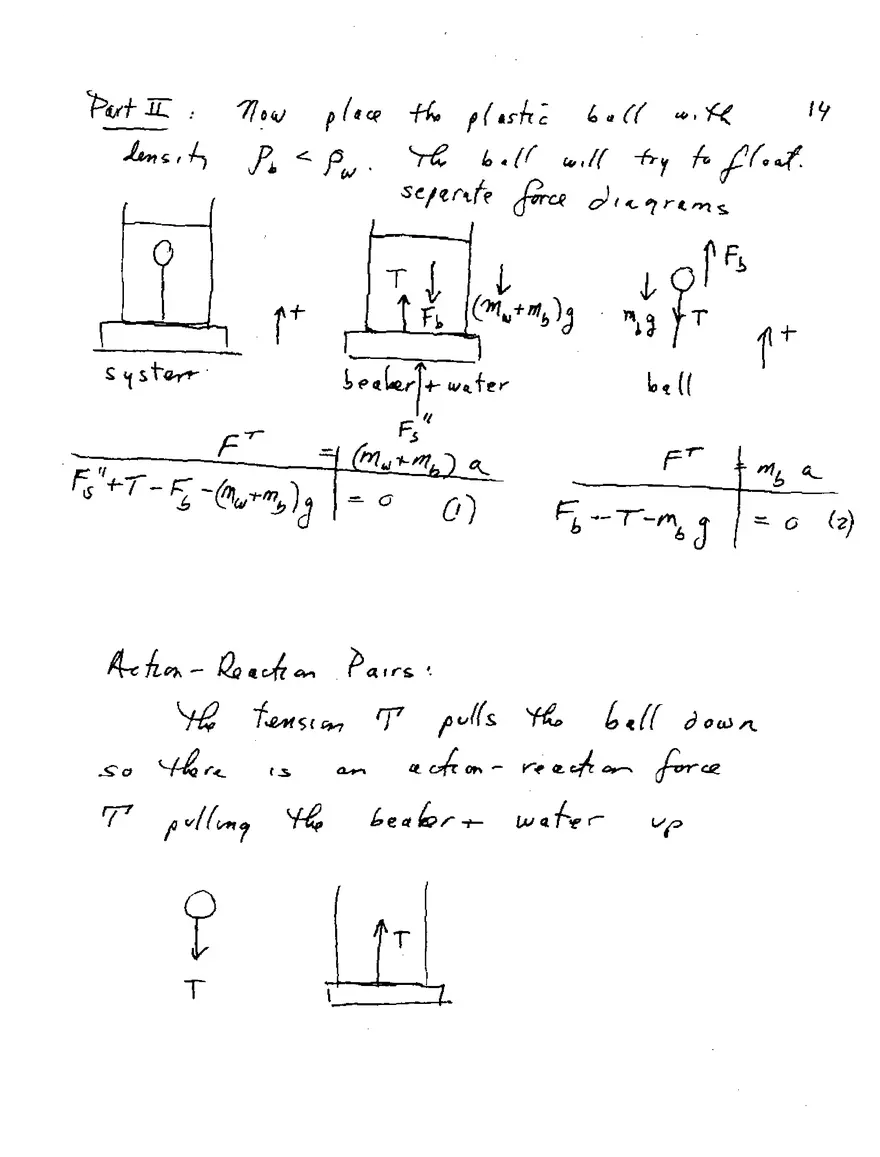 Part II : Now place the plastic ball with 14
density ρ_b < ρ_w. The ball will try to float.
separate force diagrams
T F_b (m_w+m_b)g
F_b m_b g T
+ +
system beaker + water ball
F_s"
F^T = (m_w+m_b) a F^T = m_b a
F_s"+T-F_b-(m_w+m_b)g = 0 (1) F_b-T-m_b g = 0 (2)
Action-Reaction Pairs:
The tension T pulls the ball down
so there is an action-reaction force
T pulling the beaker + water up
T
T